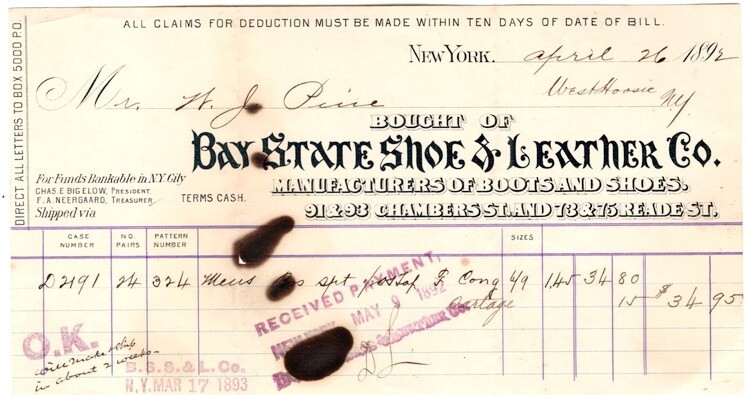 ALL CLAIMS FOR DEDUCTION MUST BE MADE WITHIN TEN DAYS OF DATE OF BILL.
DIRECT ALL LETTERS TO BOX 5000 P.O.
NEW YORK. April 26 1892
Mr. W. J. Pine
West Hoosic NY
BOUGHT OF
BAY STATE SHOE & LEATHER CO.
MANUFACTURERS OF BOOTS AND SHOES.
91 & 93 CHAMBERS ST. AND 73 & 75 READE ST.
For Funds Bankable in N.Y. City
CHAS. E. BIGELOW, PRESIDENT.
F. A. NEERGAARD, TREASURER.
Shipped via
TERMS CASH.
CASE NUMBER NO. PAIRS PATTERN NUMBER SIZES
D2191 24 324 Mens spt Cong 6/9 1.45 34 80
Cartage 15 $34 95
RECEIVED PAYMENT,
MAY 9 1892
O.K.
will make ship
in about 2 weeks-
B.S.S. & L. Co.
N.Y. MAR 17 1893